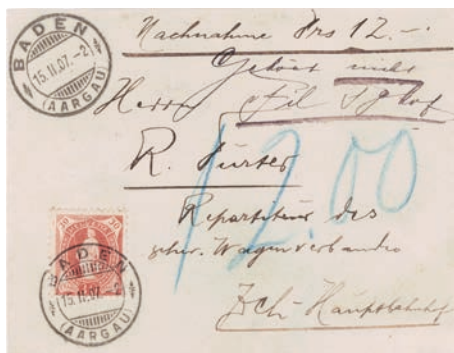 BADEN
15.II.07.-2
(AARGAU)
Nachnahme Frs 12.-
Gehört nicht
Herrn
R. Furter
12.00
Repartiteur des
schw. Wagenverbandes
Zch-Hauptbahnhof
30 30
BADEN
15.II.07.-2
(AARGAU)